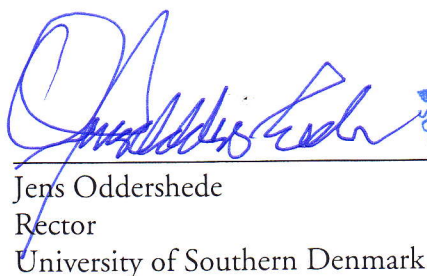 Jens Oddershede
Rector
University of Southern Denmark